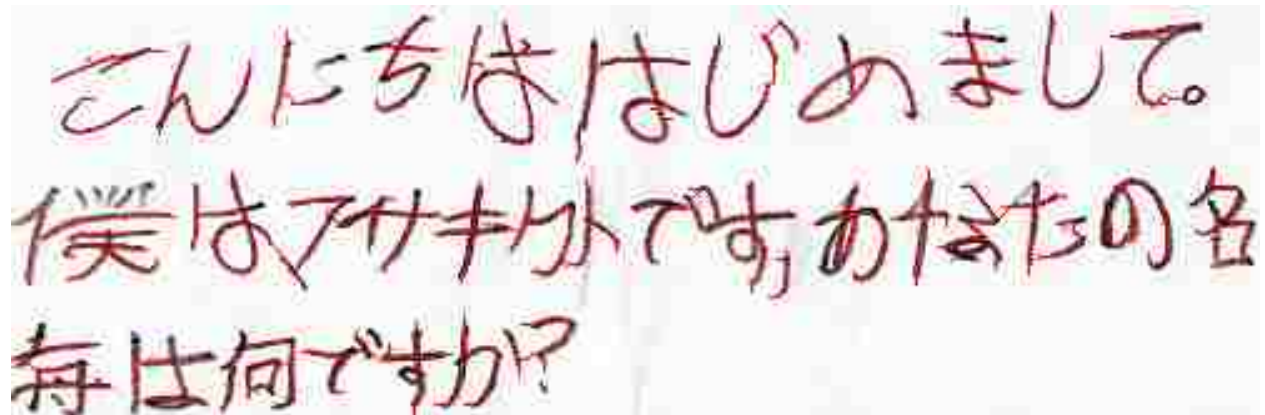 こんにちははじめまして。
僕は、アサキ外です,あなたの名
毎は何ですか?